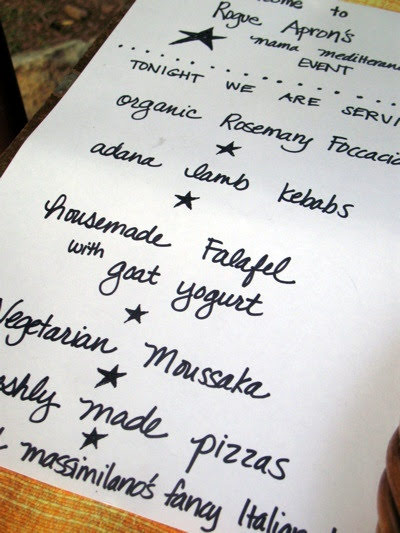 to
Rogue Apron's
mama mediterran
EVENT
TONIGHT WE ARE SERVI
organic Rosemary Foccacia
adana lamb kebabs
housemade Falafel
with goat yogurt
Vegetarian Moussaka
made pizzas
massimilano's fancy Italian